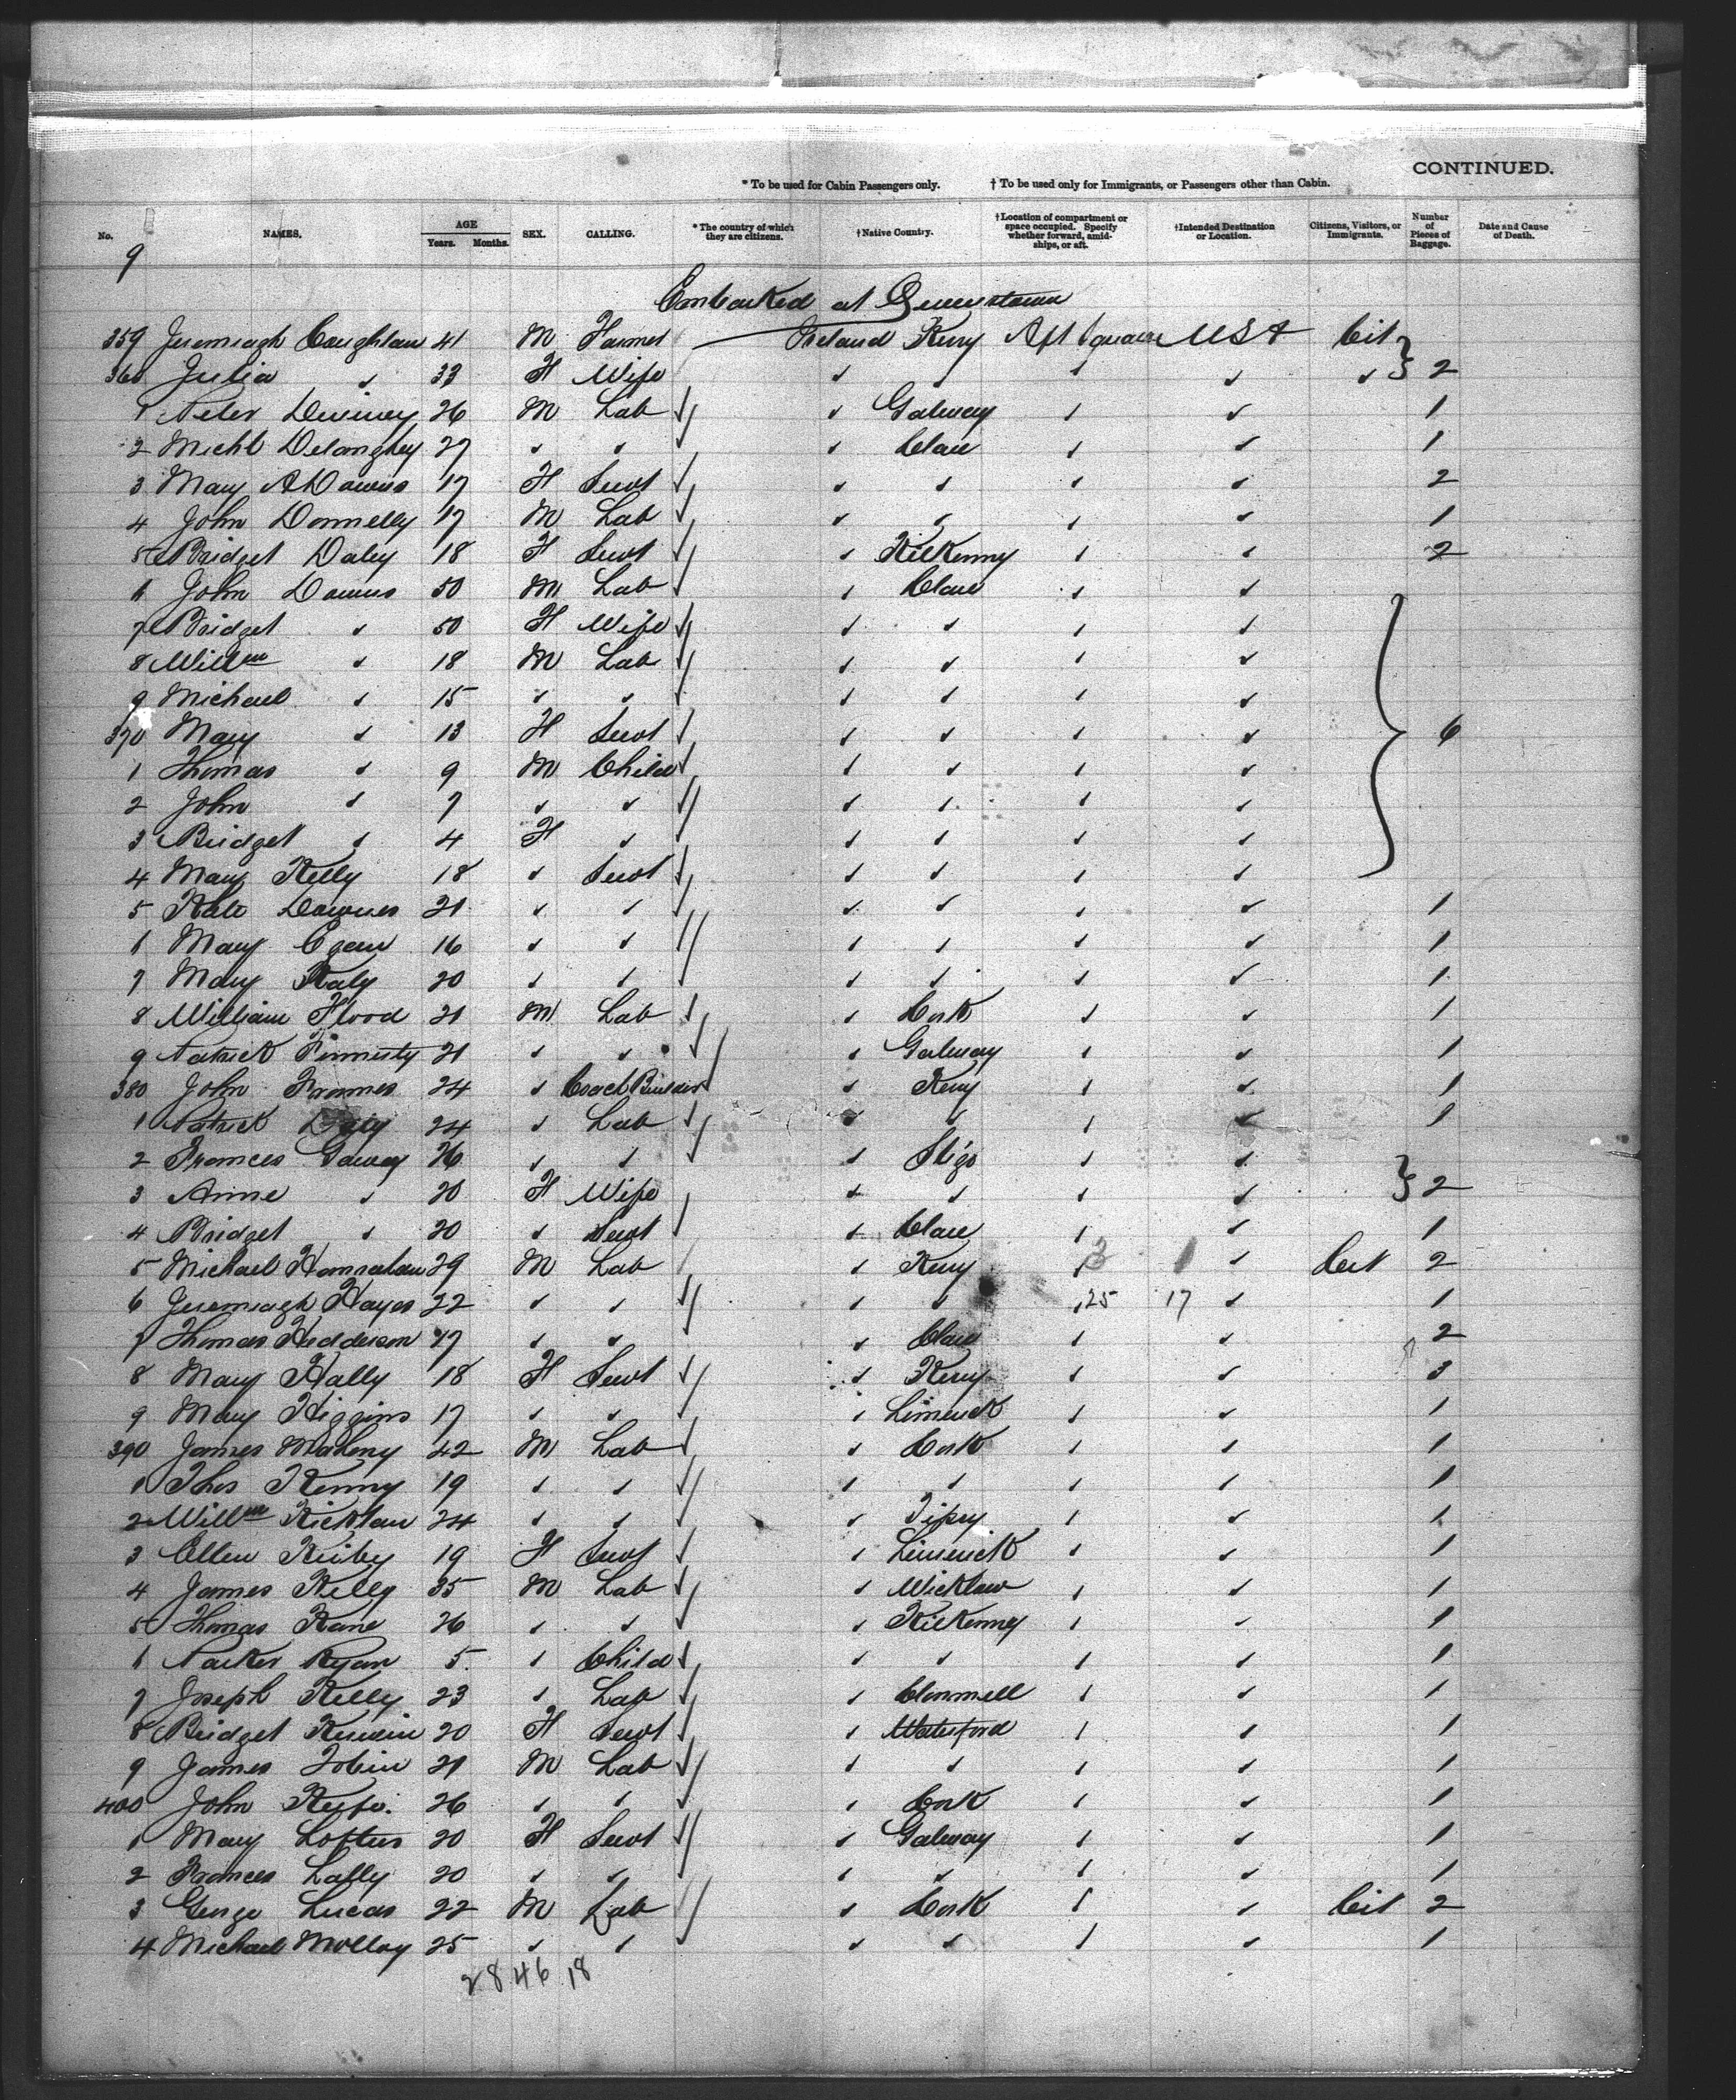 CONTINUED.
* To be used for Cabin Passengers only. † To be used only for Immigrants, or Passengers other than Cabin.
No. NAMES. AGE Years. Months. SEX. CALLING. * The country of which they are citizens. † Native Country. † Location of compartment or space occupied. Specify whether forward, amidships, or aft. † Intended Destination or Location. Citizens, Visitors, or Immigrants. Number of Pieces of Baggage. Date and Cause of Death.
9
Embarked at Queenstown
359 Jeremiagh Coughlan 41 M Farmer Ireland Kerry Aft Square USA Cit
360 Julia " 33 F Wife " " " " " 2
1 Peter Deviney 26 M Lab " Galway " " 1
2 Michl Delanghey 27 " " " Clare " " 1
3 Mary A Downs 17 F Servt " " " " 2
4 John Donnelly 17 M Lab " " " " 1
5 Bridget Daley 18 F Servt " Kilkenny " " 2
6 John Downs 50 M Lab " Clare " "
7 Bridget " 50 F Wife " " " "
8 Willm " 18 M Lab " " " "
9 Michael " 15 " " " " " "
370 Mary " 13 F Servt " " " " 6
1 Thomas " 9 M Child " " " "
2 John " 7 " " " " " "
3 Bridget " 4 F " " " " "
4 Mary Kelly 18 " Servt " " " "
5 Kate Downes 21 " " " " " " 1
6 Mary Egan 16 " " " " " " 1
7 Mary Faly 20 " " " " " " 1
8 William Flood 21 M Lab " Cork " " 1
9 Patrick Finnerty 21 " " " Galway " " 1
380 John Frames 24 " Coach Builder " Kerry " " 1
1 Patrick Daly 24 " Lab " " " " 1
2 Frances Gavey 26 " " " Sligo " "
3 Anne " 20 F Wife " " " " 2
4 Bridget " 20 " Servt " Clare " " 1
5 Michael Hanrahan 29 M Lab " Kerry " 3 1 " Cit 2
6 Jeremiagh Hayes 22 " " " " " 25 17 " 1
7 Thomas Hedderson 47 " " " Clare " " 2
8 Mary Hally 18 F Servt " Kerry " " 3
9 Mary Higgins 17 " " " Limerick " " 1
390 James Maheny 42 M Lab " Cork " " 1
1 Thos Kenny 19 " " " " " " 1
2 Willm Kicklan 24 " " " Tipry " " 1
3 Ellen Kirby 19 F Servt " Limerick " " 1
4 James Kelly 35 M Lab " Wicklow " " 1
5 Thomas Kane 26 " " " Kilkenny " " 1
6 Parker Ryan 5 " Child " " " " 1
7 Joseph Kelly 23 " Lab " Clonmell " " 1
8 Bridget Kerwin 20 F Servt " Waterford " " 1
9 James Tobin 21 M Lab " " " " 1
400 John Keefe. 26 " " " Cork " " 1
1 Mary Loftus 20 F Servt " Galway " " 1
2 Frances Lally 20 " " " " " " 1
3 George Lucas 22 M Lab " Cork " " Cit 2
4 Michael Molloy 25 " " " " " " 1
28 46 18